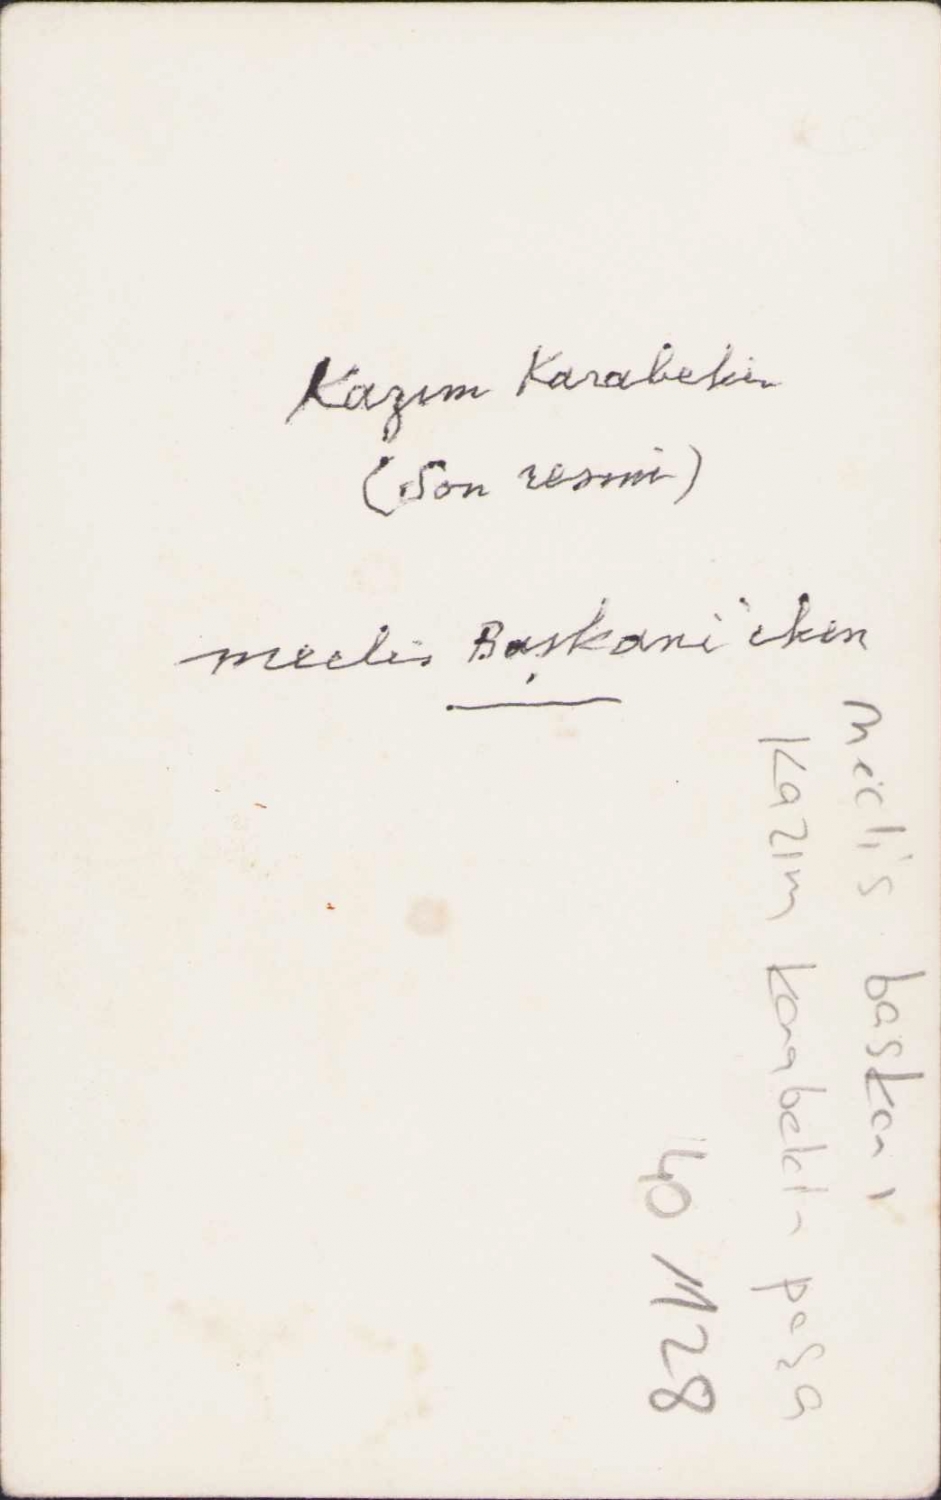 Kazım Karabekir
(Son resmi)
meclis Başkanı iken
meclis başkanı
Kazım Karabekir paşa
40/128